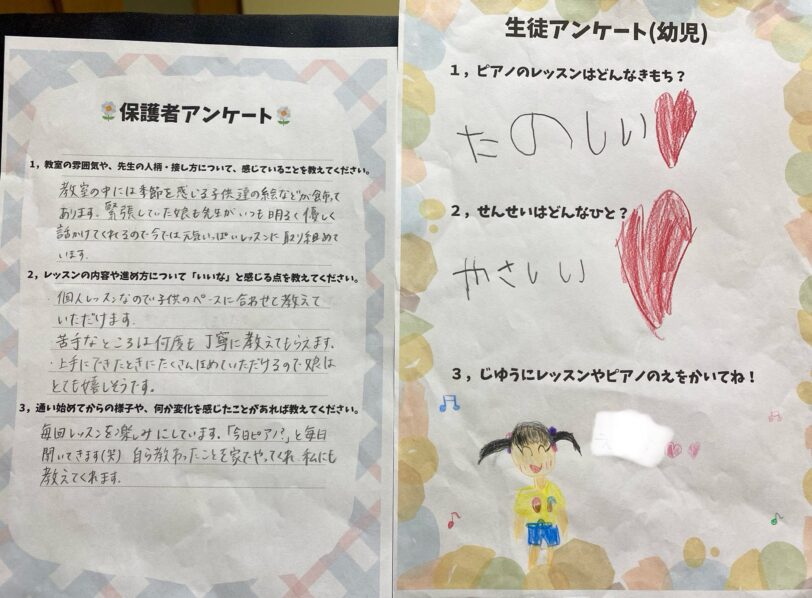 保護者アンケート
1，教室の雰囲気や、先生の人柄・接し方について、感じていることを教えてください。
教室の中には季節を感じる子供達の絵などが飾って
あります。緊張していた娘も先生がいつも明るく優しく
話かけてくれるので今では元気いっぱいレッスンに取り組めて
います。
2，レッスンの内容や進め方について「いいな」と感じる点を教えてください。
・個人レッスンなので子供のペースに合わせて教えて
いただけます。
・苦手なところは何度も丁寧に教えてもらえます。
・上手にできたときにたくさんほめていただけるので娘は
とても嬉しそうです。
3，通い始めてからの様子や、何か変化を感じたことがあれば教えてください。
毎回レッスンを楽しみにしています。「今日ピアノ?」と毎日
聞いてきます(笑) 自ら教わったことを家でやってくれ 私にも
教えてくれます。
生徒アンケート(幼児)
1，ピアノのレッスンはどんなきもち？
たのしい
2，せんせいはどんなひと？
やさしい
3，じゆうにレッスンやピアノのえをかいてね！